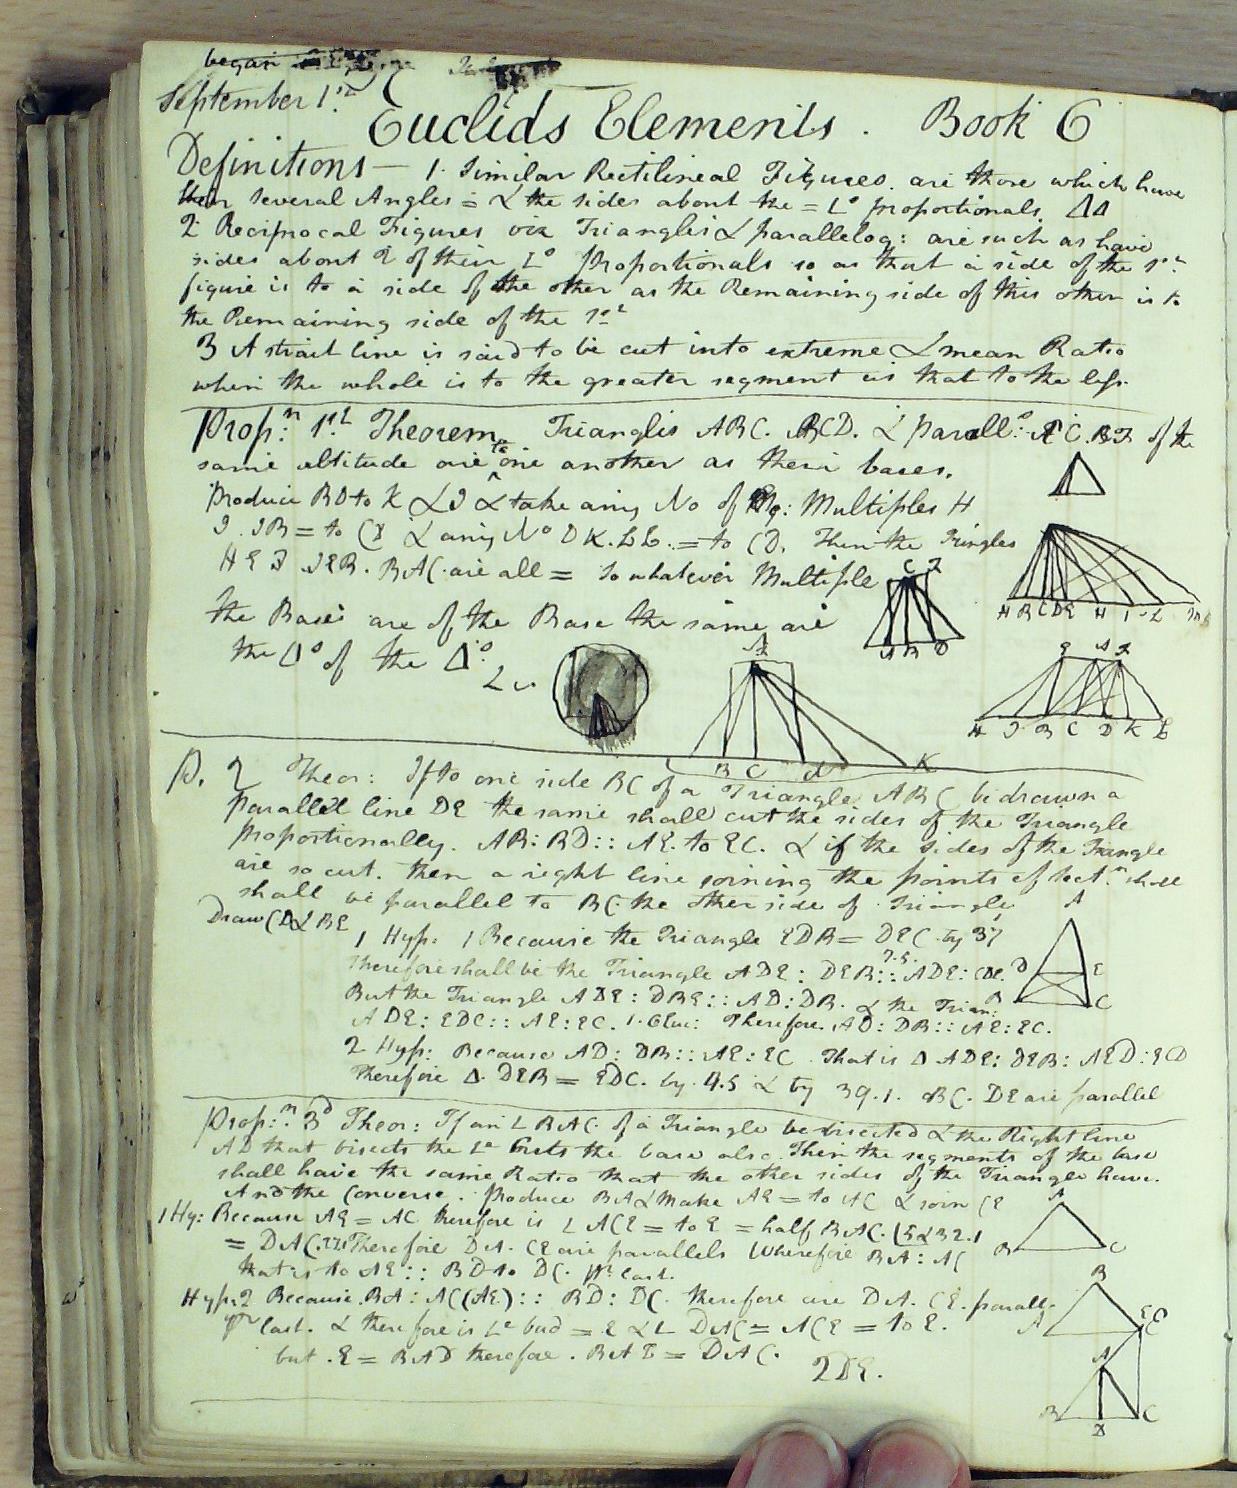 began
September 1st
Euclids Elements. Book 6
Definitions — 1. Similar Rectilineal Figures. are those which have
their several Angles = & the sides about the = Ls proportionals. ΔΔ
2 Reciprocal Figures viz Triangles & parallelog: are such as have
sides about 2 of their Ls Proportionals so as that a side of the 1st
figure is to a side of the other as the Remaining side of this other is to
the Remaining side of the 1st
3 A strait line is said to be cut into extreme & mean Ratio
when the whole is to the greater segment as that to the less.
Propn 1st Theorem. Triangles ABC. ACD. & parall:s EC. CF of the
same altitude are to one another as their bases.
Produce BD to K & take any No of Multiples H
= to CB & any No DK. KL. = to CD. Then the Triangles
BAC. are all = So whatever Multiple
the Bases are of the Base the same are
the Δs of the Δs.
P. 2 Theor: If to one side BC of a Triangle ABC be drawn a
Parallel line DE the same shall cut the sides of the Triangle
Proportionally. AB: BD:: AE. to EC. & if the sides of the Triangle
are so cut. then a right line joining the points of sect.n shall
shall be parallel to BC. the other side of Triangle
Draw CD & BE
1 Hyp: 1 Because the Triangle EDB = DEC. by 37
Therefore shall be the Triangle ADE: DEB:: ADE: CDE.
7.5.
But the Triangle ADE: DBE:: AD: DB. & the Trian:
ADE: EDC:: AE: EC. Therefore. AD: DB:: AE: EC.
2 Hyp: Because AD: DB:: AE: EC That is Δ ADE: DEB: AED: ECD
Therefore Δ. DEB = EDC. by. 9.5 & by 39.1. BC. DE are parallel
Prop:n 3d Theor: If an L BAC. of a Triangle be bisected & the Right line
AD that bisects the Le Cuts the base also. Then the segments of the base
shall have the same Ratio that the other sides of the Triangle have.
And the Converse. Produce BA & Make AE = to AC & join CE
1 Hy: Because AE = AC therefore is L ACE = to E = half BAC. 5 & 32.1
= DAC. Therefore DA. CE are parallels Wherefore BA: AC
that is to AE:: BD to DC. pr last.
Hyp: 2 Because. BA: AC(AE):: BD: DC. therefore are DA. CE. parall.
pr last. & therefore is Le bad = E & L DAC = ACE = to E.
but. E = BAD therefore. BAD = DAC.
QDE.